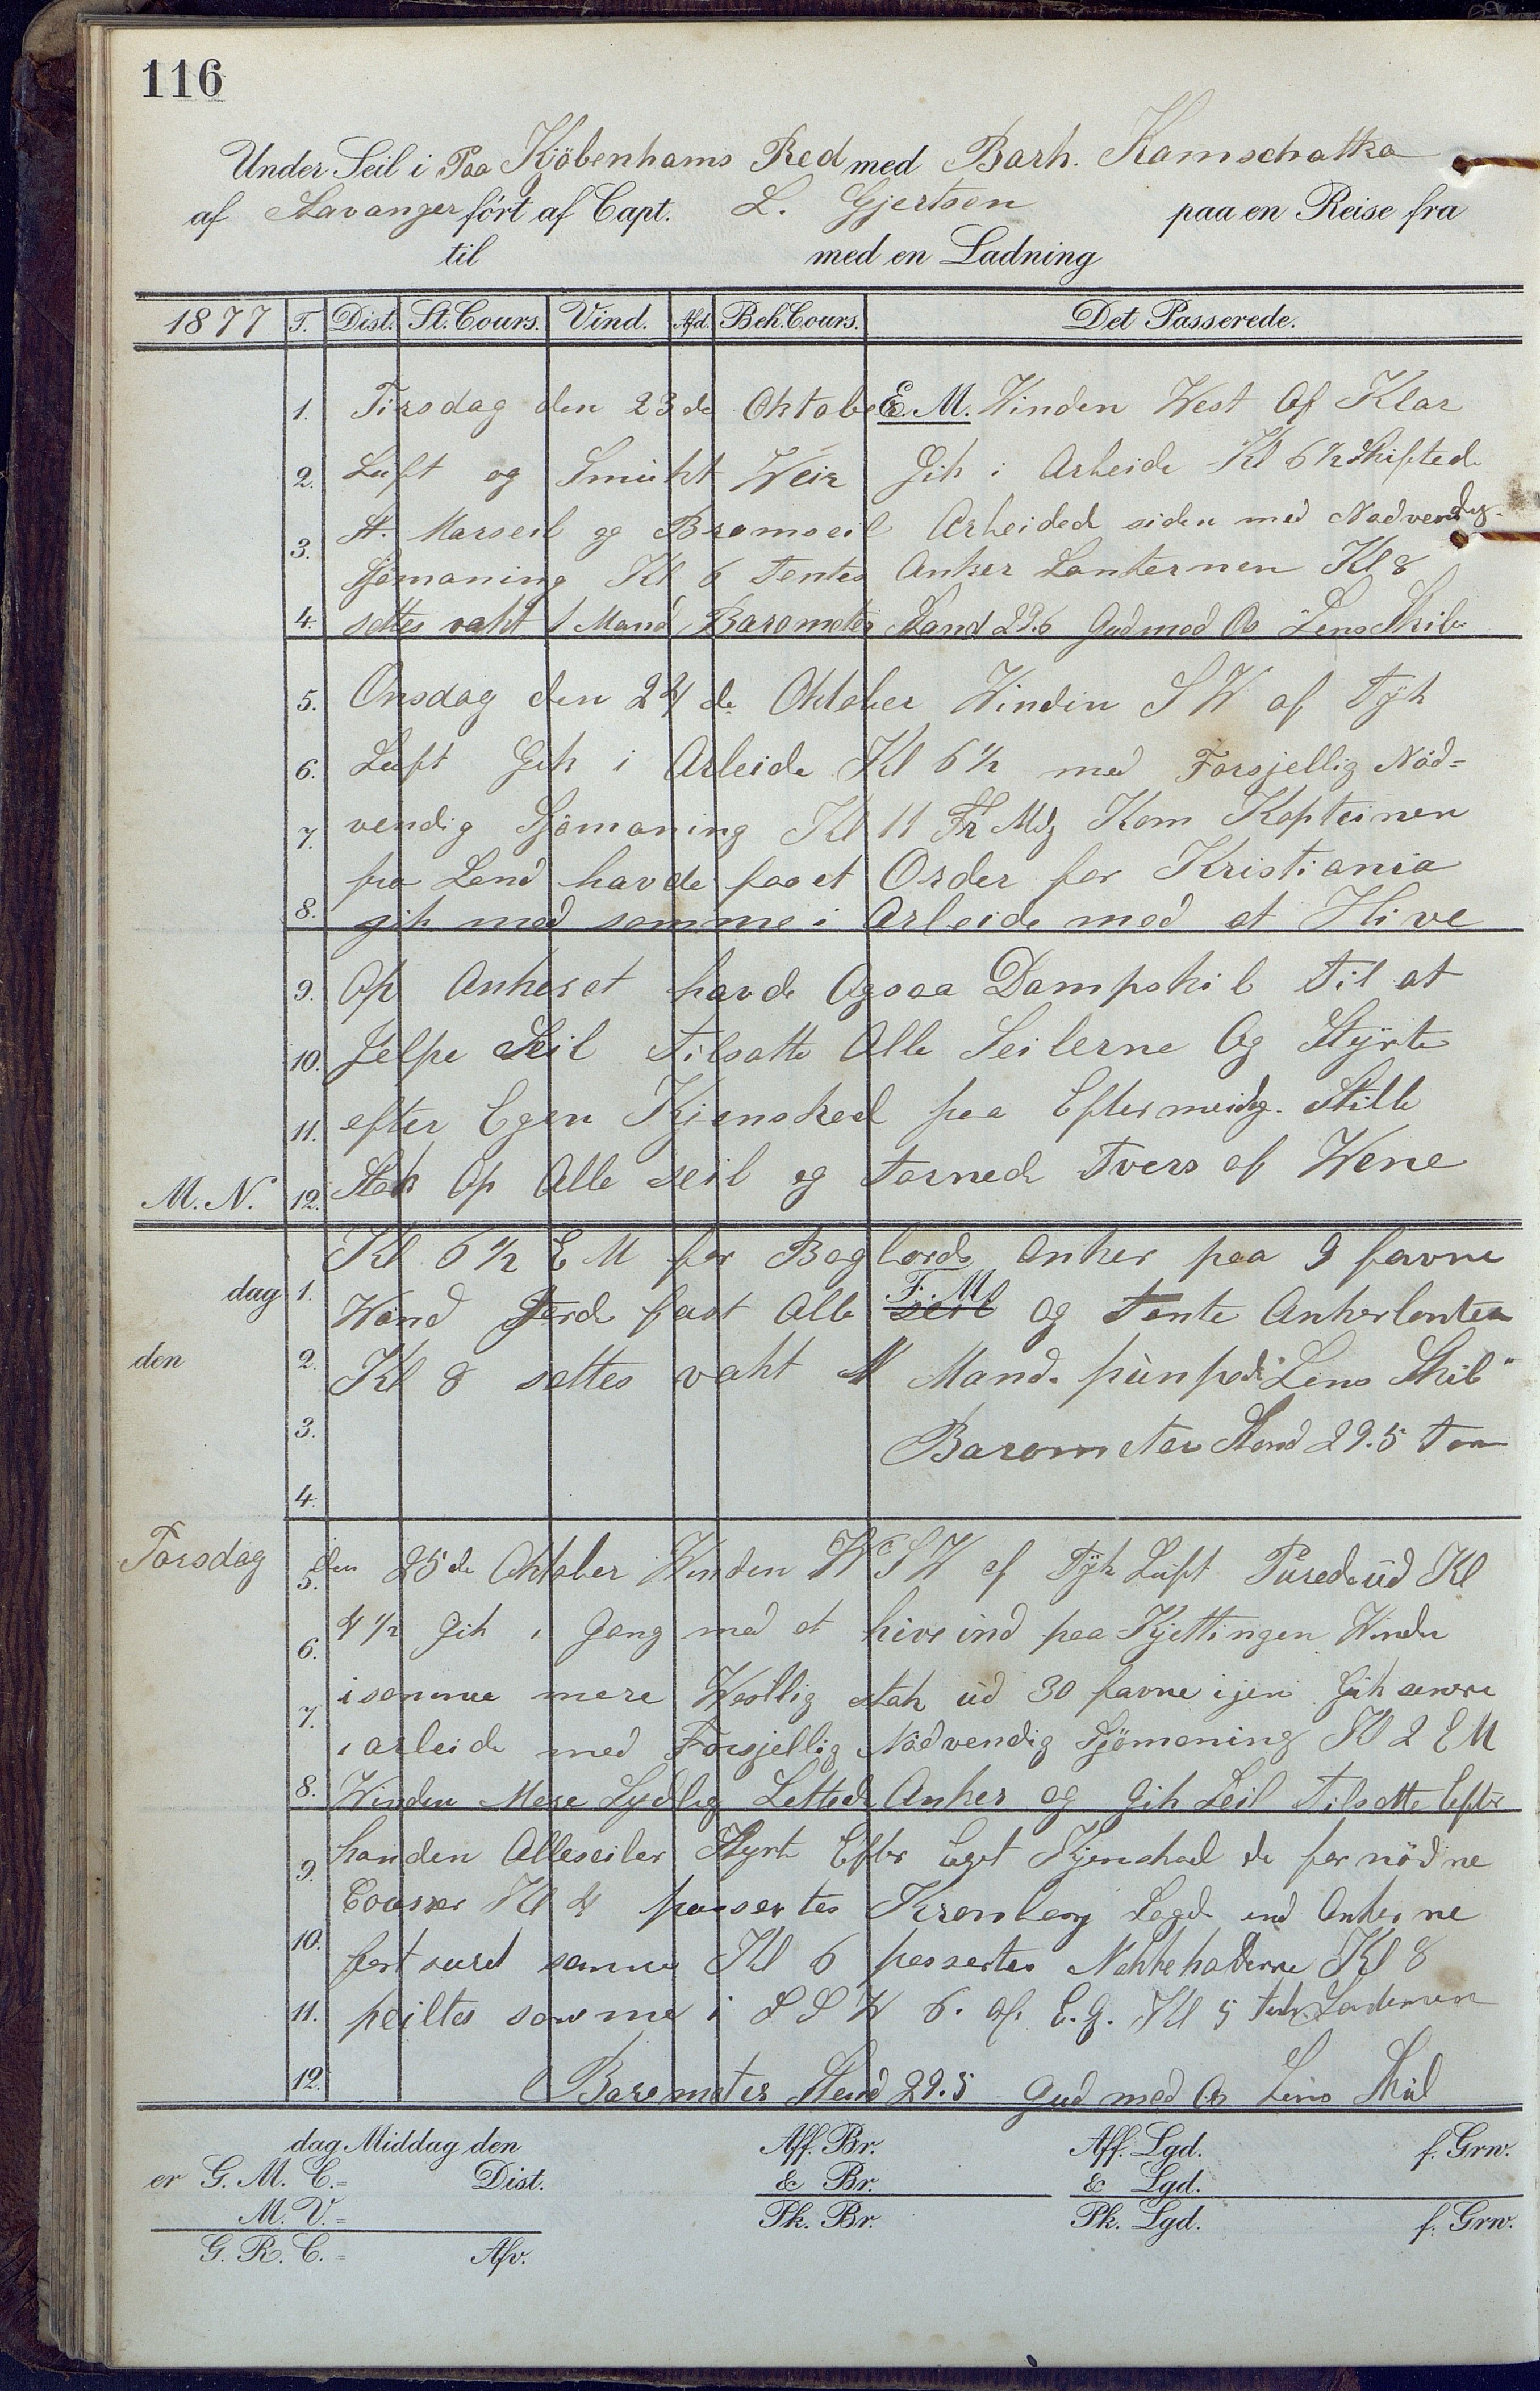 116
Under Seil i Paa Kjöbenhams Red med Bark. Kamschatka
af Stavanger fört af Capt. L. Gjertsen paa en Reise fra
til med en Ladning
1877 T. Dist. St. Cours. Vind. Afd. Beh. Cours. Det Passerede.
1. Tirsdag den 23 de Oktober E. M. Winden West Af Klar
2. Luft og Smukt Weir Gik i Arbeide Kl 6 1/2 Skiftede
3. St. Marseil og Bramseil Arbeided siden med Nødvendig.
Sjömaning Kl 6 Tentes Anker Lanternen Kl 8
4. settes vakt 1 Mand Barometer Stand 29.6 Gud med Os Lens Skib
5. Onsdag den 24 de Oktober Winden S W af Tyk
6. Luft Gik i Arbeide Kl 6 1/2 med Forsjellig Nöd=
7. vendig Sjömaning Kl 11 Fr Mdg Kom Kapteinen
fra Land havde faaet Order for Kristiania
8. gik med samme i Arbeide med at Hive
9. Op Ankeret havde Ogsaa Dampskib til at
10. Jelpe Seil tilsatte Alle Seilerne Og Styrte
11. efter Egen Kjenskab paa Eftermeidg. Stille
M. N. 12. Stak Op Alle seil og tornede Tvers af Wene
Kl 6 1/2 E M for Bagbords anker paa 9 favne
dag 1. F. M
Wand gjorde fast Alle seil og Tente Ankerlanter
den 2. Kl 8 settes vakt 1 Mand. pùnped "Lens Skib"
3. Barometer Stand 29.5 Tom
4.
Torsdag 5. den 25 de Oktober Winden W S W af Tyk Lùft Pùrede ùd Kl
6. 4 1/2 Gik i Gang med at hive ind paa Kjettingen Winden
7. i samme mere Westlig stak ùd 30 favne igjen Gik senere
i arbeide med Forsjellig Nödvendig Sjömaning Kl 2 E M
8. Winden Mere Sydlig Lettede Anker og Gik Seil Tilsatte Efter
9. handen Alleseiler Styrte Efter Eget Kjenskab de fornödne
Courser Kl 4 passertes Kronborg Lagde ind Ankerne
10. fortsured samme Kl 6 passertes Nakkehoderne Kl 8
11. peiltes samme i S S W 6. af. E. G. Kl 5
12. Barometer Stand 29.5 Gud med Os Lens Skib
dag Middag den Aff. Br. Aff. Lgd. f. Grw.
er G. M. C.= Dist. & Br. & Lgd.
M. V.= Pk. Br. Pk. Lgd. f. Grw.
G. R. C.= Afv.